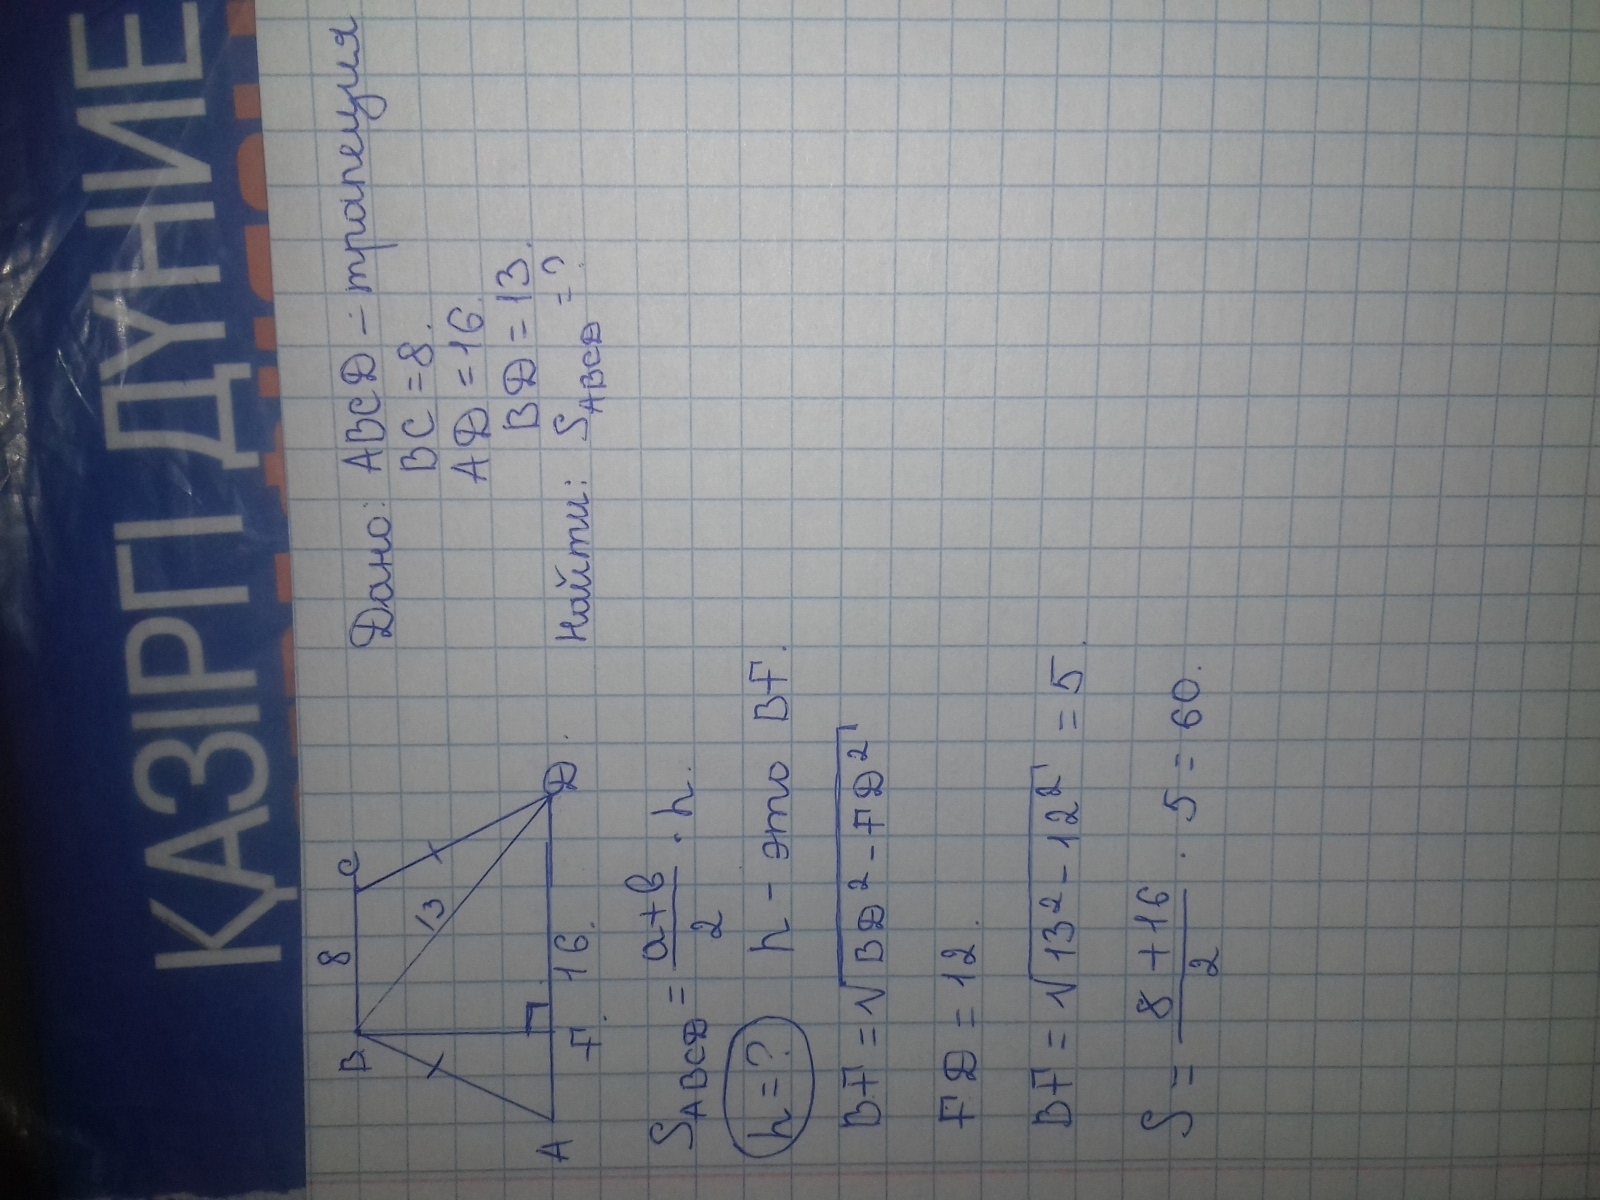 ҚАЗІРГІ ДҮНИЕ
B 8 C
13
A F. 16. D.
Дано: ABCD – трапеция
BC = 8.
AD = 16.
BD = 13.
Найти: S_ABCD = ?
S_ABCD = (a+b)/2 · h.
h = ? h – это BF.
BF = √(BD² – FD²)
FD = 12.
BF = √(13² – 12²) = 5.
S = (8 + 16)/2 · 5 = 60.